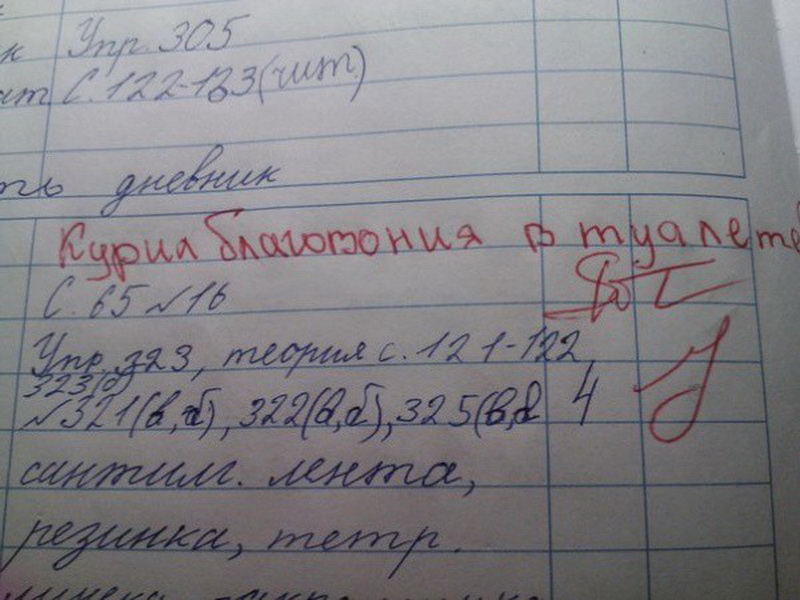 Упр. 305
С. 122-123 (чит.)
дневник
Курил благовония в туалете
С. 65 №16
Упр. 323, теория с. 121-122
№321(в,б), 322(в,б), 325(в, 4
сантим. лента,
резинка, тетр.